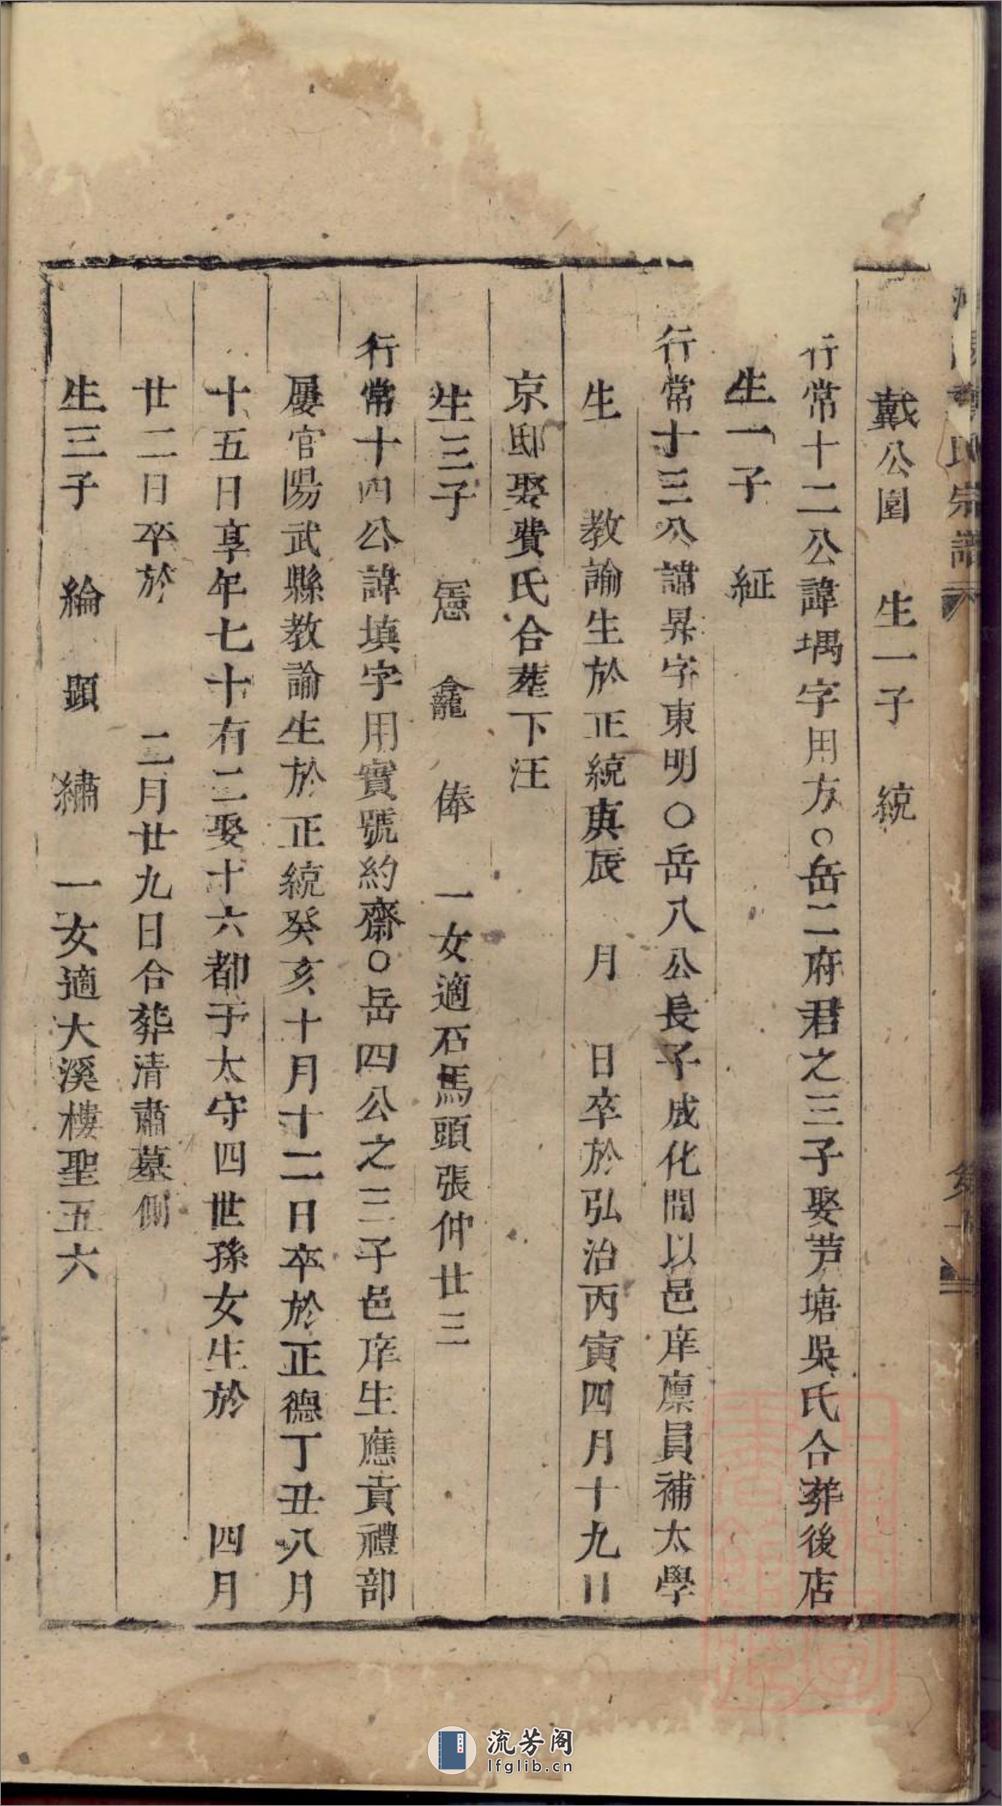 戴公園　生一子　統
行常十二公諱堣字用方○岳二府君之三子娶芦塘吳氏合葬後店
生一子　紝
行常十三公諱昇字東明○岳八公長子成化間以邑庠廩員補太學
生　教諭生於正統庚辰　月　日卒於弘治丙寅四月十九日
京邸娶費氏合葬下汪
生三子　龕　俸　一女適石馬頭張仲廿三
行常十四公諱塡字用實號約齋○岳四公之三子邑庠生應貢禮部
屢官陽武縣教諭生於正統癸亥十月十二日卒於正德丁丑八月
十五日享年七十有二娶十六都于太守四世孫女生於　四月
廿二日卒於　二月廿九日合葬清肅墓側
生三子　綸　顕　繡　一女適大溪樓聖五六
氏宗譜
流芳阁
lfglib.cn